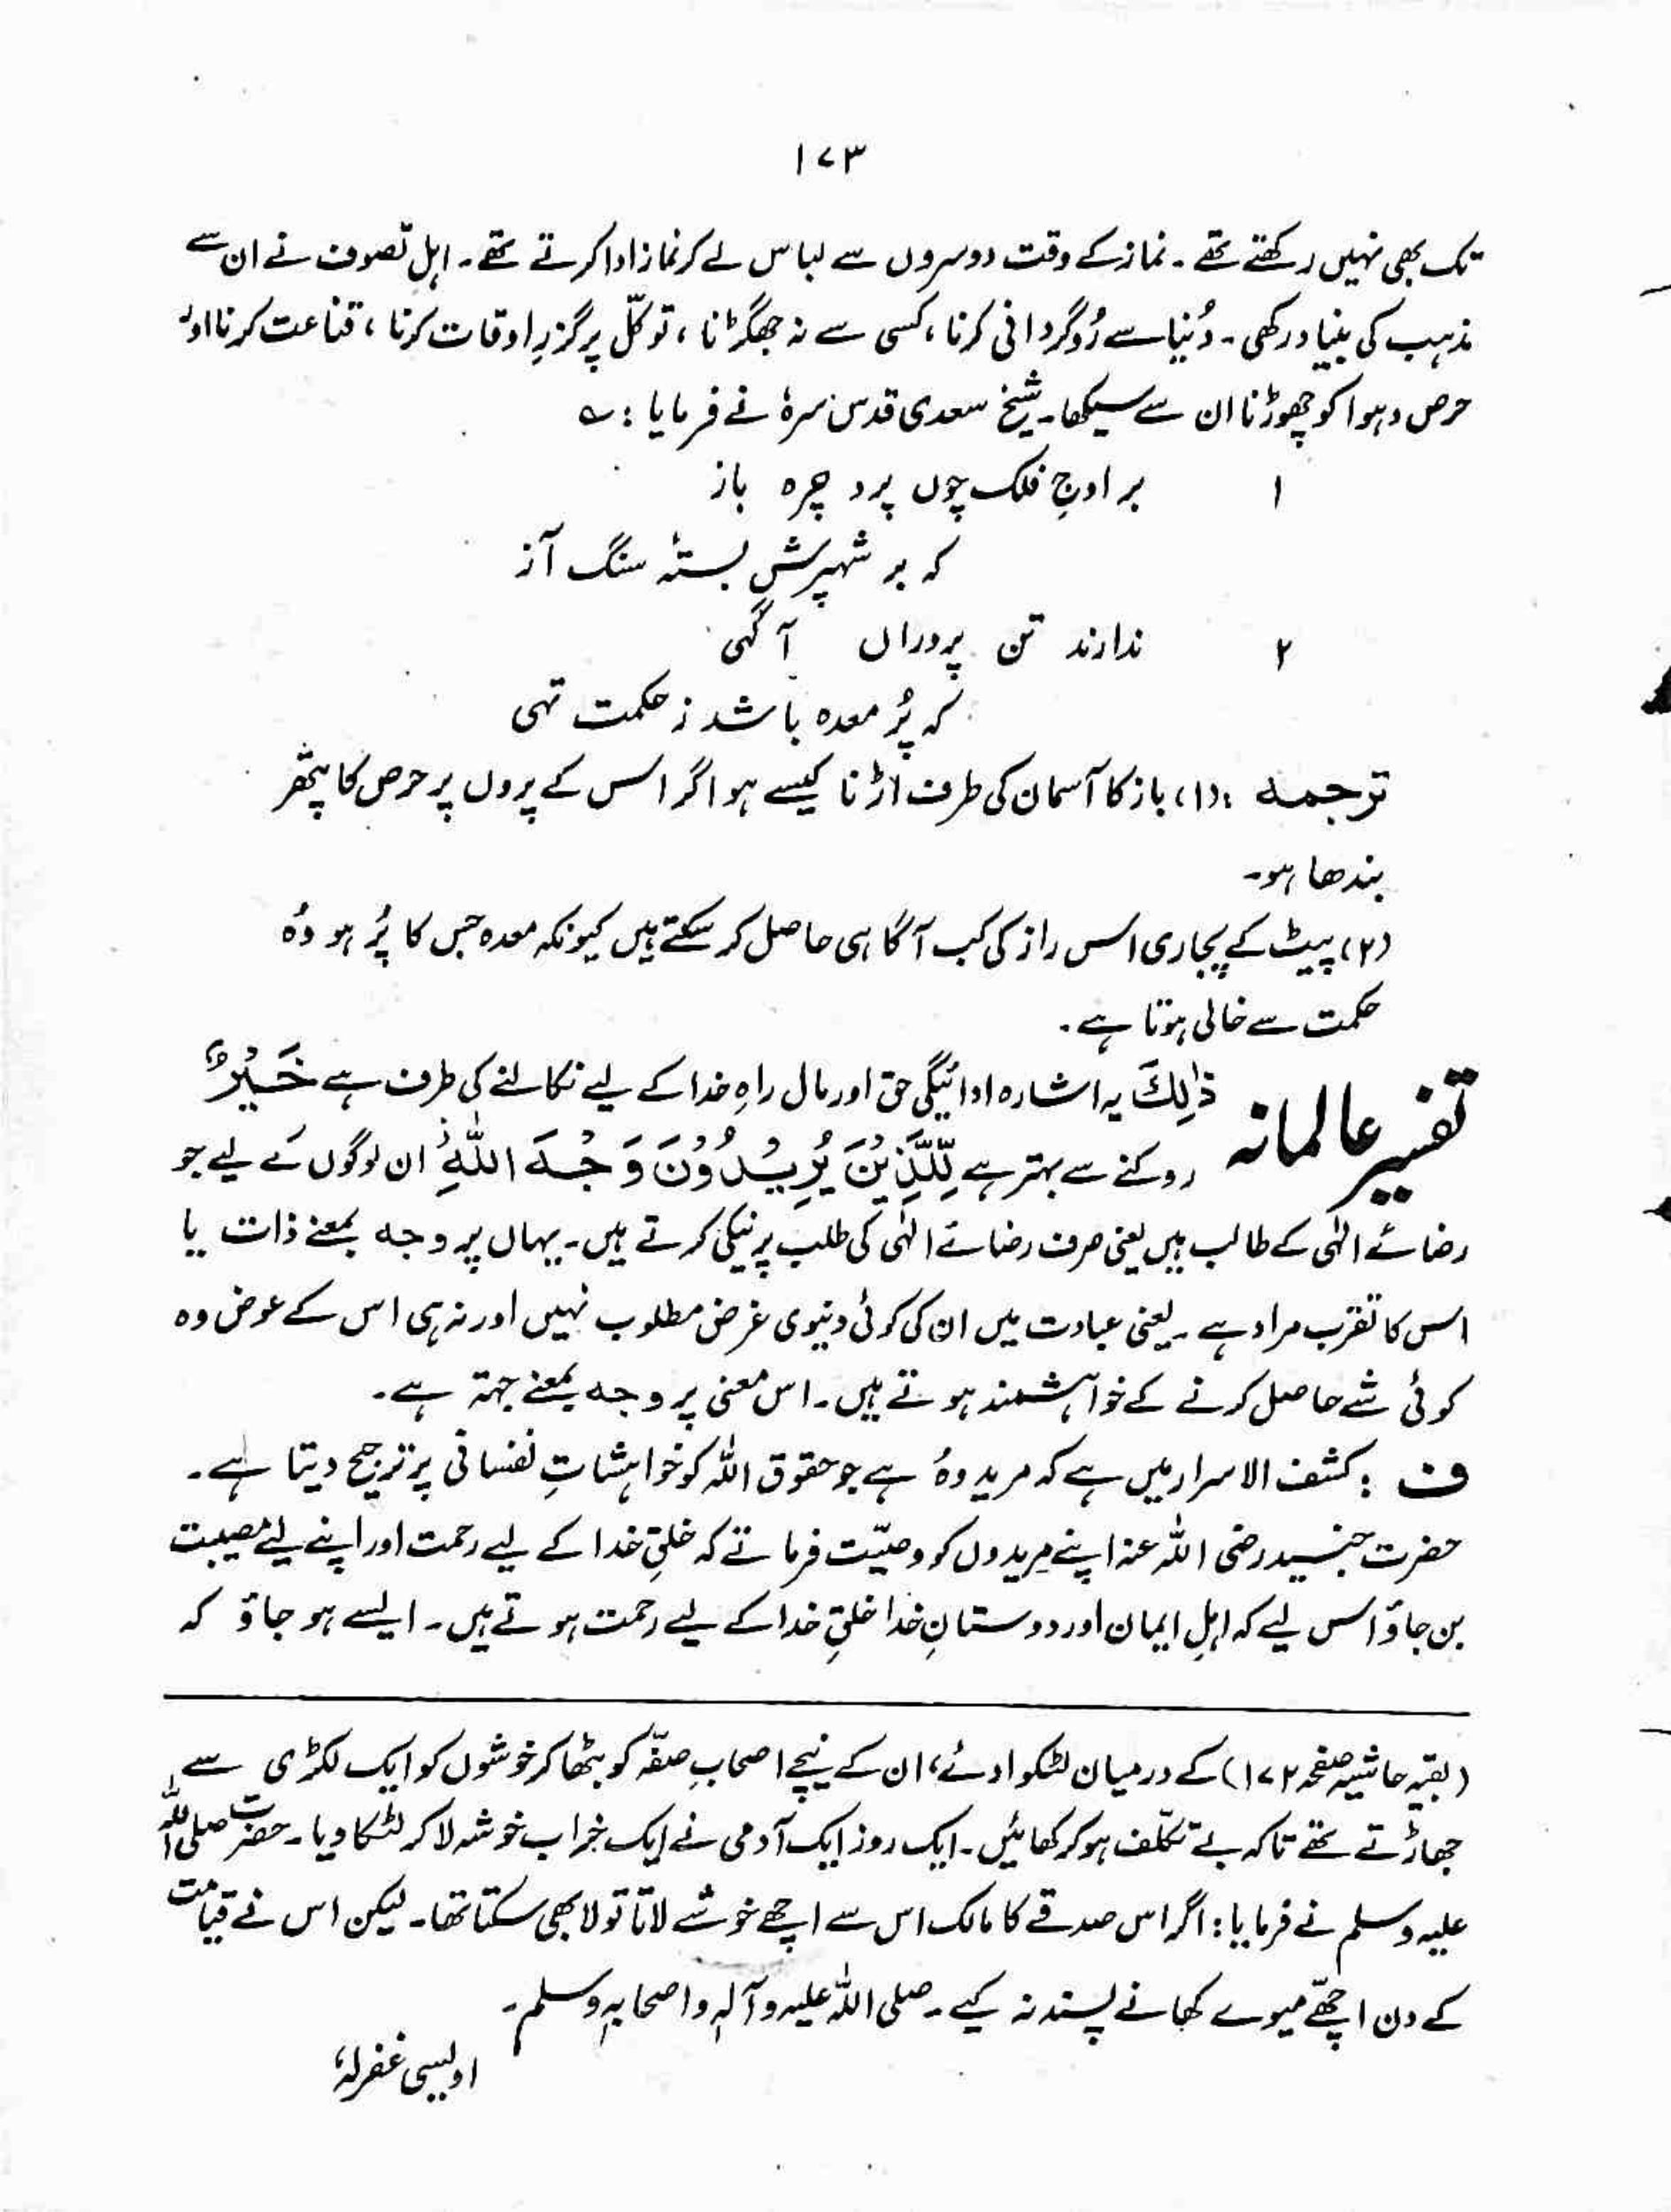 ۱۷۳
تک بھی نہیں رکھتے تھے۔ نماز کے وقت دوسروں سے لباس لے کر نماز ادا کرتے تھے۔ اہلِ تصوف نے ان سے
مذہب کی بنیاد رکھی۔ دُنیا سے رُوگردانی کرنا، کسی سے نہ جھگڑنا، توکّل پر گزرِ اوقات کرنا، قناعت کرنا اور
حرص و ہوا کو چھوڑنا ان سے سیکھا۔ شیخ سعدی قدس سرہٗ نے فرمایا : ؎
۱ بر اوجِ فلک چوں پرد چرہ باز
کہ بر شہپرش بستۂ سنگ آز
۲ ندارند تن پروراں آگہی
کہ پُر معدہ باشد ز حکمت تہی
ترجمہ : (۱) باز کا آسمان کی طرف اڑنا کیسے ہو اگر اس کے پروں پر حرص کا پتھر
بندھا ہو۔
(۲) پیٹ کے پجاری اس راز کی کب آگاہی حاصل کر سکتے ہیں کیونکہ معدہ جس کا پُر ہو وُہ
حکمت سے خالی ہوتا ہے۔
تفسیر عالمانہ ذٰلِكَ یہ اشارہ ادائیگی حق اور مال راہِ خدا کے لیے نکالنے کی طرف ہے خَيْرٌ
روکنے سے بہتر ہے لِّلَّذِيْنَ يُرِيْدُوْنَ وَجْهَ اللّٰهِ ان لوگوں کے لیے جو
رضائے الٰہی کے طالب ہیں یعنی صرف رضائے الٰہی کی طلب پر نیکی کرتے ہیں۔ یہاں پر وجہ بمعنے ذات یا
اس کا تقرب مراد ہے۔ یعنی عبادت میں ان کی کوئی دنیوی غرض مطلوب نہیں اور نہ ہی اس کے عوض وہ
کوئی شے حاصل کرنے کے خواہشمند ہوتے ہیں۔ اس معنی پر وجہ بمعنے جہۃ ہے۔
ف : کشف الاسرار میں ہے کہ مرید وُہ ہے جو حقوق اللہ کو خواہشاتِ نفسانی پر ترجیح دیتا ہے۔
حضرت جنید رضی اللہ عنہ اپنے مریدوں کو وصیّت فرماتے کہ خلقِ خدا کے لیے رحمت اور اپنے لیے مصیبت
بن جاؤ اس لیے کہ اہلِ ایمان اور دوستانِ خدا خلقِ خدا کے لیے رحمت ہوتے ہیں۔ ایسے ہو جاؤ کہ
(بقیہ حاشیہ صفحہ ۱۷۲) کے درمیان لٹکوا دئے، ان کے نیچے اصحابِ صفّہ کو بٹھا کر خوشوں کو ایک لکڑی سے
جھاڑتے تھے تاکہ بے تکلّف ہو کر کھائیں۔ ایک روز ایک آدمی نے ایک خراب خوشہ لا کر لٹکا دیا۔ حضرت صلی اللہ
علیہ وسلم نے فرمایا : اگر اس صدقے کا مالک اس سے اچھے خوشے لاتا تو لا بھی سکتا تھا۔ لیکن اس نے قیامت
کے دن اچھّے میوے کھانے پسند نہ کیے۔ صلی اللہ علیہ وآلہٖ واصحابہٖ وسلم۔
اویسی غفرلہٗ